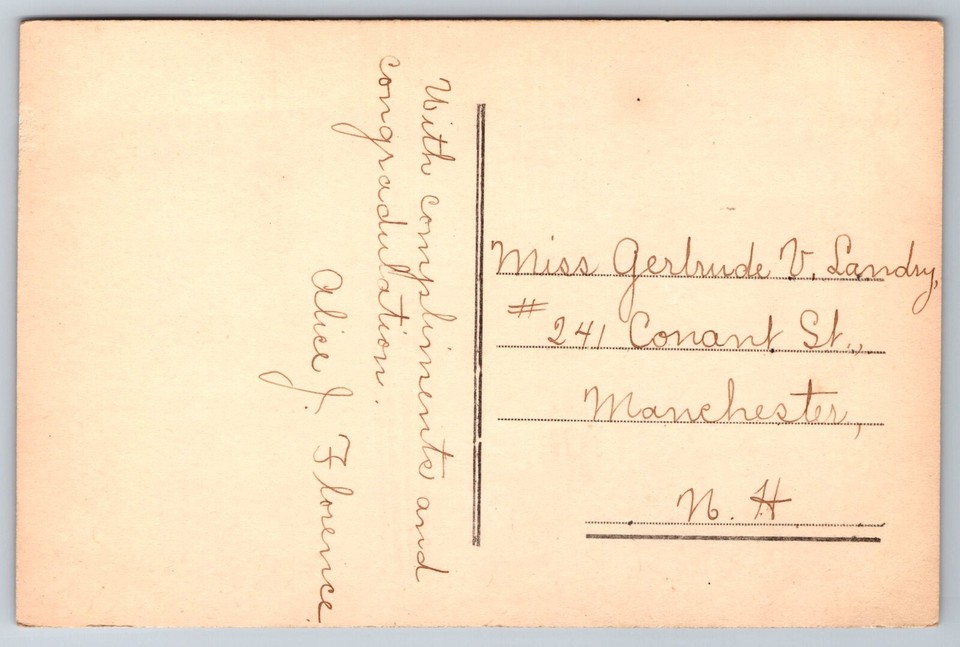 With compliments and
congradulation.
Alice J. Florence.
Miss Gertrude V. Landry,
# 241 Conant St.,
Manchester,
N. H